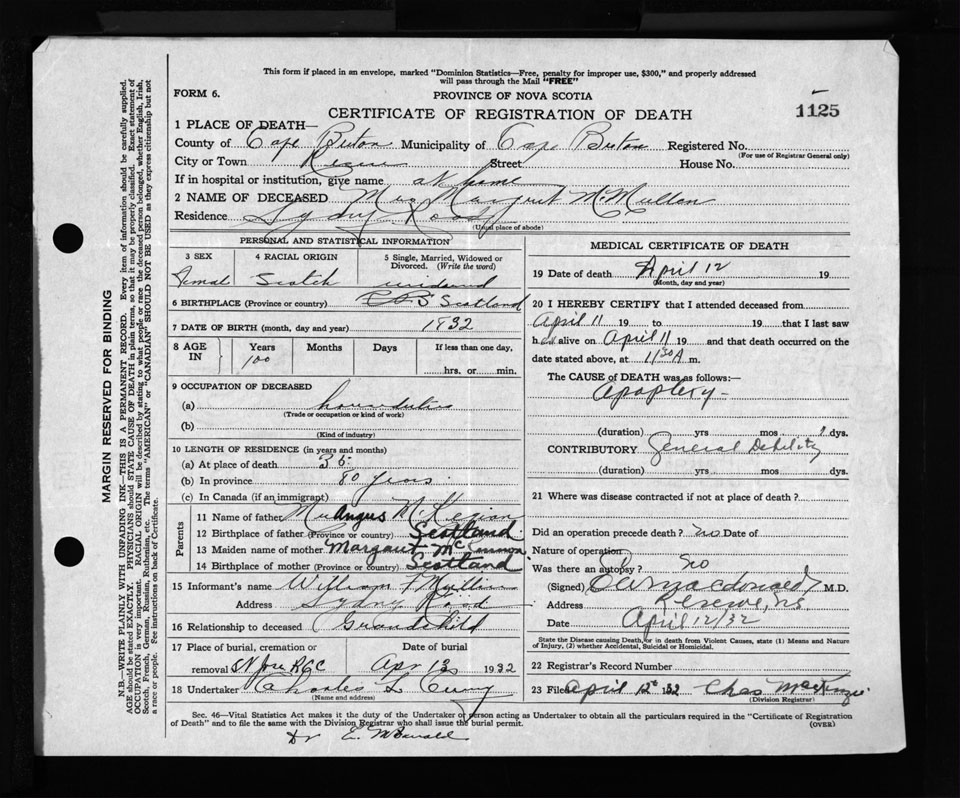 This form if placed in an envelope, marked "Dominion Statistics—Free, penalty for improper use, $300," and properly addressed
will pass through the Mail "FREE"
FORM 6.
PROVINCE OF NOVA SCOTIA
CERTIFICATE OF REGISTRATION OF DEATH
1125
1 PLACE OF DEATH—
County of Cape Breton Municipality of Cape Breton Registered No.
(For use of Registrar General only)
City or Town Street House No.
If in hospital or institution, give name at home
2 NAME OF DECEASED Mrs Margret McMullon
Residence Sydny Road
(Usual place of abode)
PERSONAL AND STATISTICAL INFORMATION
3 SEX 4 RACIAL ORIGIN 5 Single, Married, Widowed or Divorced. (Write the word)
Femal Scotch
6 BIRTHPLACE (Province or country) Scotland
7 DATE OF BIRTH (month, day and year) 1832
8 AGE IN Years Months Days If less than one day,
100
hrs. or min.
9 OCCUPATION OF DECEASED
(a)
(Trade or occupation or kind of work)
(b)
(Kind of industry)
10 LENGTH OF RESIDENCE (in years and months)
(a) At place of death 35
(b) In province 80 years
(c) In Canada (if an immigrant)
Parents
11 Name of father Angus
12 Birthplace of father (Province or country) Scotland
13 Maiden name of mother Margaret
14 Birthplace of mother (Province or country) Scotland
15 Informant's name William
Address Sydny Road
16 Relationship to deceased Grandchild
17 Place of burial, cremation or removal Date of burial
R C Apr 13 1932
18 Undertaker Charles L Curry
(Name and address)
MEDICAL CERTIFICATE OF DEATH
19 Date of death April 12 19
(Month, day and year)
20 I HEREBY CERTIFY that I attended deceased from
April 11 19 to 19 that I last saw
h alive on April 11 19 and that death occurred on the
date stated above, at 11 30 A m.
The CAUSE of DEATH was as follows:—
Apoplexy —
(duration) yrs mos dys.
CONTRIBUTORY General Debility
(duration) yrs mos dys.
21 Where was disease contracted if not at place of death?
Did an operation precede death? no Date of
Nature of operation
Was there an autopsy? no
(Signed) Macdonald, M.D.
Address Reserve, NS
Date April 12/32
State the Disease causing Death, or in death from Violent Causes, state (1) Means and Nature of Injury, (2) whether Accidental, Suicidal or Homicidal.
22 Registrar's Record Number
23 Filed April 15th 32 Chas McKenzie
(Division Registrar)
Sec. 46—Vital Statistics Act makes it the duty of the Undertaker or person acting as Undertaker to obtain all the particulars required in the "Certificate of Registration
of Death" and to file the same with the Division Registrar who shall issue the burial permit. (OVER)
Dr E.
MARGIN RESERVED FOR BINDING
N.B.—WRITE PLAINLY WITH UNFADING INK—THIS IS A PERMANENT RECORD. Every item of information should be carefully supplied.
AGE should be stated EXACTLY. PHYSICIANS should STATE CAUSE OF DEATH in plain terms, so that it may be properly classified. Exact statement of
OCCUPATION is very important. RACIAL ORIGIN will be described by stating to what people or race the deceased person belonged, whether English, Irish,
Scotch, French, German, Russian, Ruthenian, etc. The terms "AMERICAN" or "CANADIAN" SHOULD NOT BE USED as they express citizenship but not
a race or people. See instructions on back of Certificate.